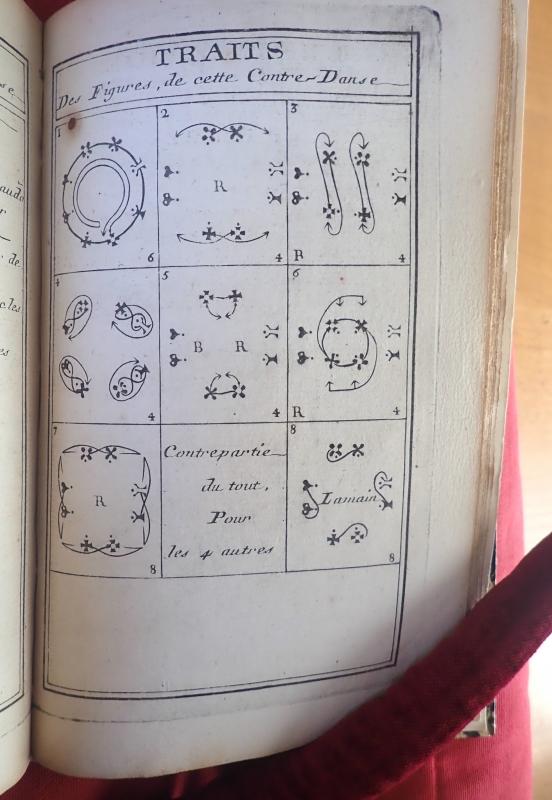 TRAITS
Des Figures, de cette Contre-Danse
1
6
2
R
4
3
R
4
4
4
5
B R
4
6
R
4
7
R
8
Contrepartie
du tout,
Pour
les 4 autres
8
Lamain
8